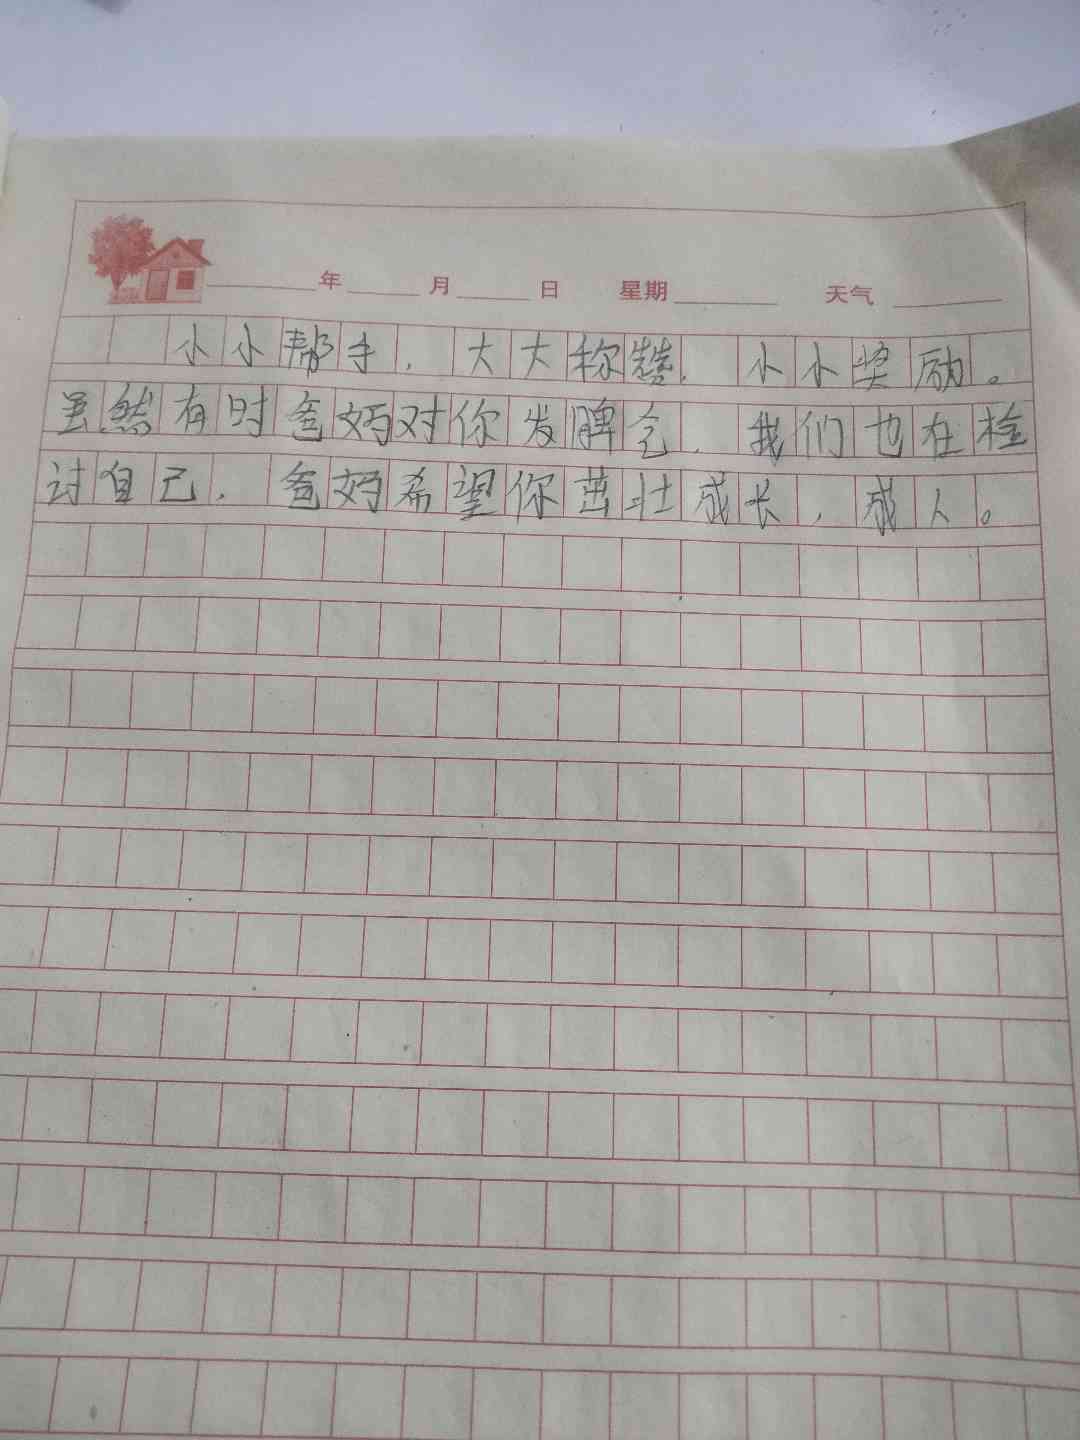 年 月 日 星期 天气
小小帮手，大大称赞，小小奖励。
虽然有时爸妈对你发脾气，我们也在检
讨自己，爸妈希望你茁壮成长，成人。